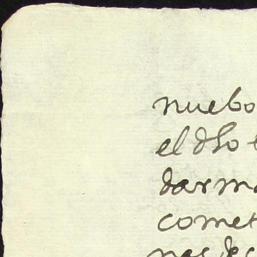 nuebo
el dho
darm
comet